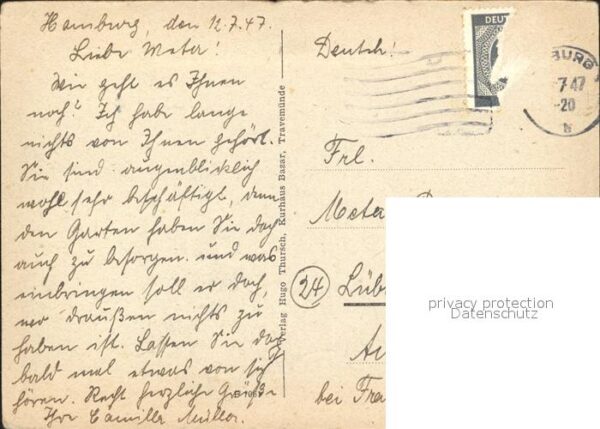 Hamburg, den 12.7.47.
Liebe Meta!
Wie geht es Ihnen
noch? Ich habe lange
nichts von Ihnen gehört.
Sie sind augenblicklich
wohl sehr beschäftigt, denn
den Garten haben Sie doch
auch zu besorgen. und was
einbringen soll er doch,
wo draußen nichts zu
haben ist. Lassen Sie doch
bald mal etwas von sich
hören. Recht herzliche Grüße
Ihre Camilla Müller.
Verlag Hugo Thursch, Kurhaus Bazar, Travemünde
Deutsch!
DEU
BURG
7.47
-20
Frl.
Meta
24
Lüb
bei Fra
privacy protection
Datenschutz